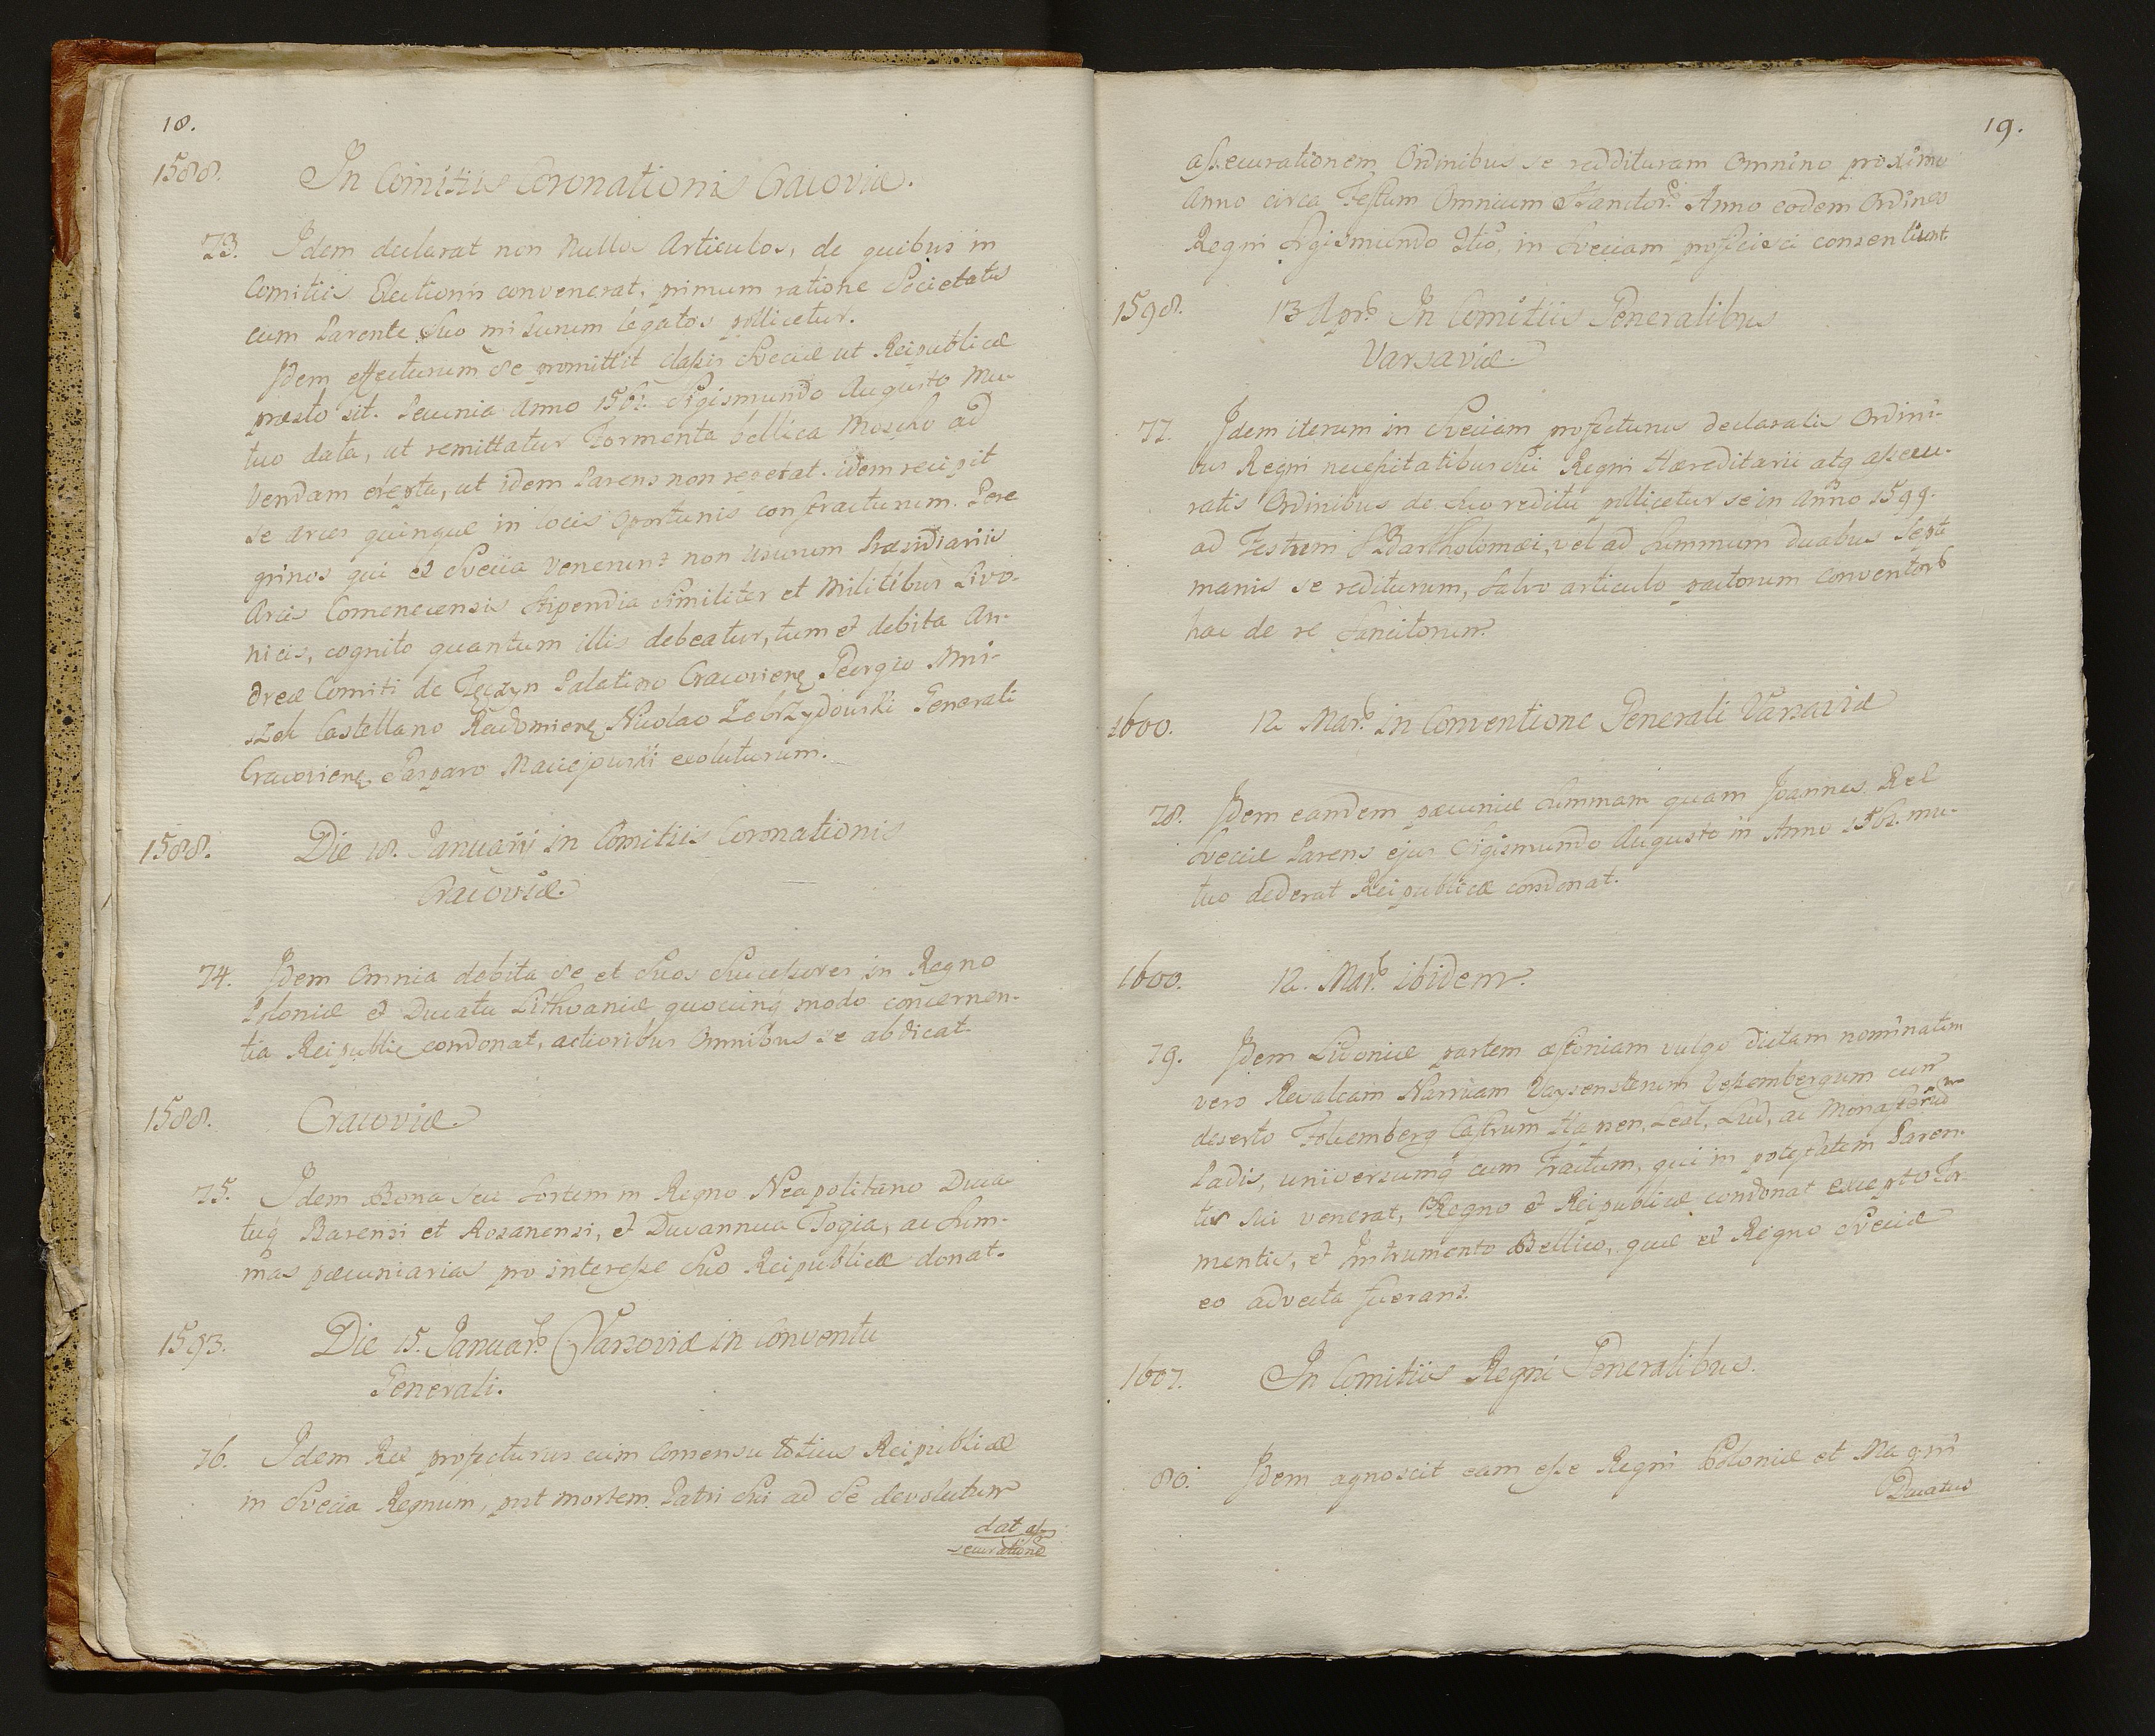 18.
1588. In Comitiis Coronationis Cracoviæ.
73. Idem declarat non nullos Articulos, de quibus in
Comitiis Electionis convenerat, primum ratione Societatis
cum Parente Suo missurum legatos pollicetur.
Idem effecturum se promittit classis Sveciæ ut Reipublicæ
præsto sit. Pecunia Anno 1562. Sigismundo Augusto Mu-
tuo data, ut remittatur Tormenta bellica Moscho ad
Vendam erepta, ut idem Parens non repetat. idem recipit
se arces quinque in locis oportunis constracturum. Pere
grinos qui ex Svecia venerunt non usurum Præsidiariis
Arcis Camenecensis Stipendia Similiter et Militibus Livo-
nicis, cognito quantum illis debeatur, tum et debita An-
dreæ Comiti de Tęczyn Palatino Cracovienę Georgio Mni-
szek Castellano Radomienę Nicolao Zebrzydowski Generali
Cracovienę Gasparo Maciejowski exoluturum.
1588. Die 18. Januarii in Comitiis Coronationis
Cracoviæ.
74. Idem Omnia debita se et Suos Successores in Regno
Poloniæ et Ducatu Lithvaniæ quocunq modo concernen-
tia Reipublicæ condonat, actioribus Omnibus se abdicat.
1588. Cracoviæ.
75. Idem Bona seu Sortem in Regno Neapolitano Duca
tuq Barensi et Rosanensi, et Duvannua Fogia, ac Sum-
mas pæcuniarias pro interesse Suo Reipublicæ donat.
1593. Die 15. Januar. Varsoviæ in Conventu
Generali.
76. Idem Rex profecturus cum Consensu totius Reipublicæ
in Svecia Regnum, post mortem Patri Sui ad Se devolutum
dat as-
securatione
19.
assecurationem Ordinibus se redditurum Omnino proximo
Anno circa Festum Omnium Sanctor. Anno eodem Ordines
Regni Sigismundo 3tio. in Sveciam proficisci consentiunt.
1598. 13 Apr. In Comitiis Generalibus
Varsaviæ.
77. Idem iterum in Sveciam profecturus declaratis Ordini-
bus Regni necessitatibus Sui Regni Hæreditarii atq assecu-
ratis Ordinibus de Suo reditu pollicetur se in Anno 1599.
ad Festum S. Bartholomæi, vel ad Summum duabus Septi
manis se rediturum, Salvo articulo pactorum Conventor
hac de re Sancitorum.
1600. 12 Mar. in Conventione Generali Varsaviæ
78. Idem eandem pæcuniæ Summam quam Joannes Rex
Sveciæ Parens ejus Sigismundo Augusto in Anno 1562. mu-
tuo dederat Reipublicæ condonat.
1600. 12. Mar. ibidem.
79. Idem Livoniæ partem æstoniam vulgo dictam nominatim
vero Revaleam Narviam Vaysenstenum Vesembergum cum
deserto Tolcemberg Castrum Hapsen, Leal, Lud, ac Monasterium
Padis, universumq eum Tractum, qui in potestatem Paren-
tis sui venerat, Regno et Reipublicæ condonat excepto Tor-
mentis, et Instrumento Bellico, quæ ex Regno Sveciæ
eo advecta fuerant.
1607. In Comitiis Regni Generalibus.
80. Idem agnoscit eam esse Regni Poloniæ et Magni
Ducatus